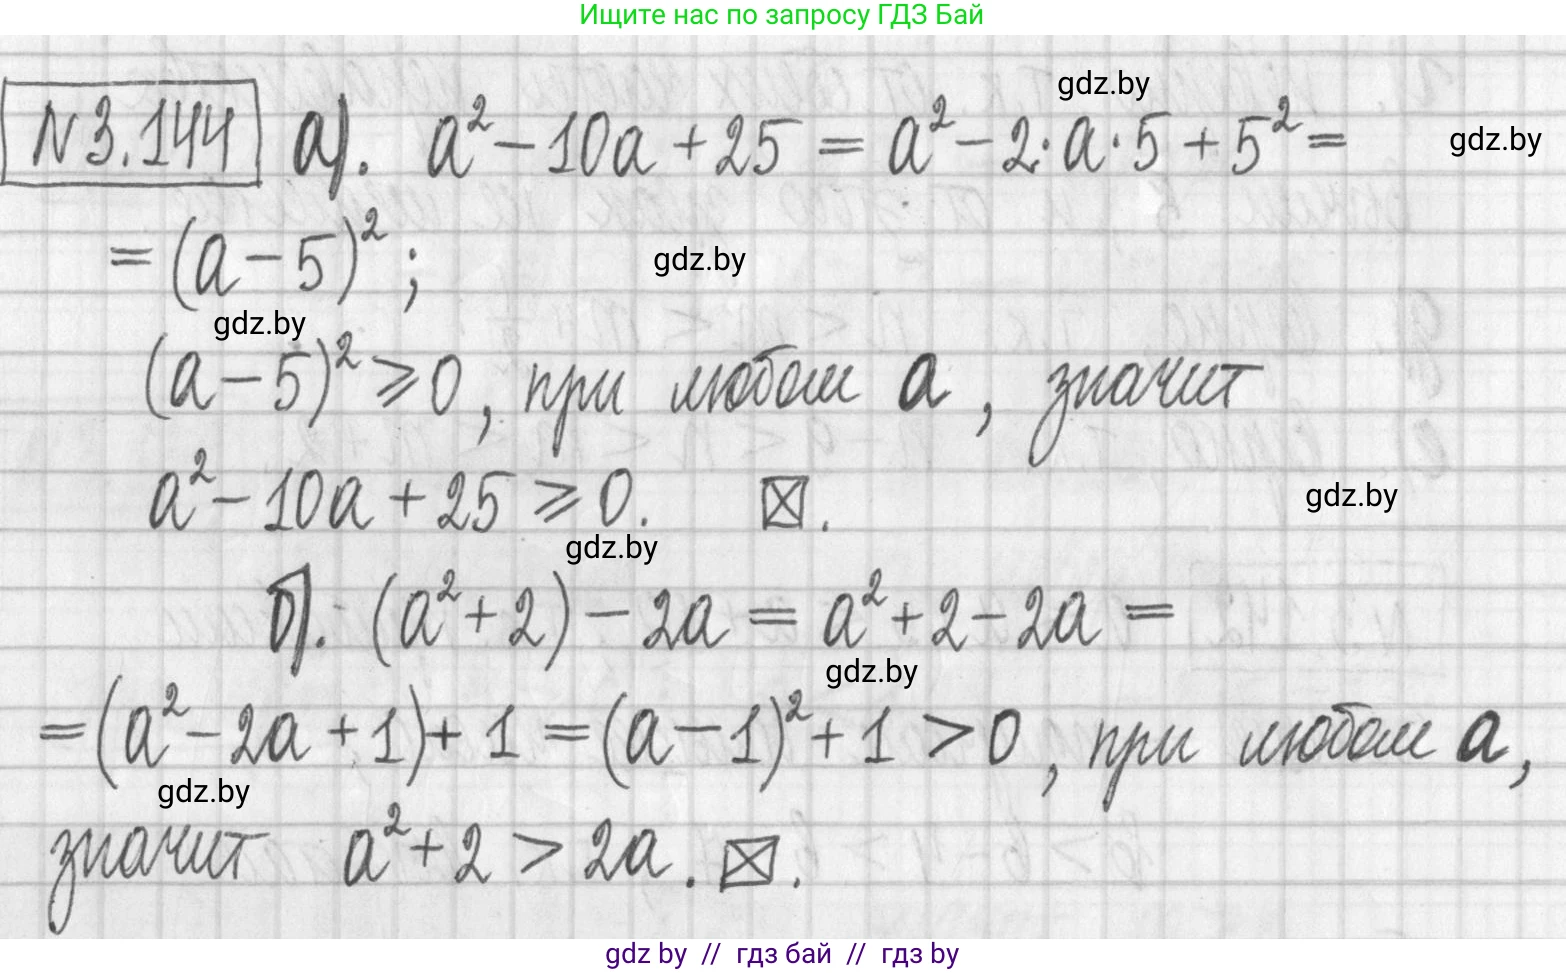 Ищите нас по запросу ГДЗ Бай
N3.144 а). a² - 10a + 25 = a² - 2·a·5 + 5² =
gdz.by
gdz.by
= (a - 5)² ;
gdz.by
gdz.by
(a - 5)² ⩾ 0, при любом a, значит
a² - 10a + 25 ⩾ 0. ⊠.
gdz.by
gdz.by
б). (a² + 2) - 2a = a² + 2 - 2a =
gdz.by
= (a² - 2a + 1) + 1 = (a - 1)² + 1 > 0, при любом a,
gdz.by
значит a² + 2 > 2a. ⊠.
gdz by // гдз бай // гдз by